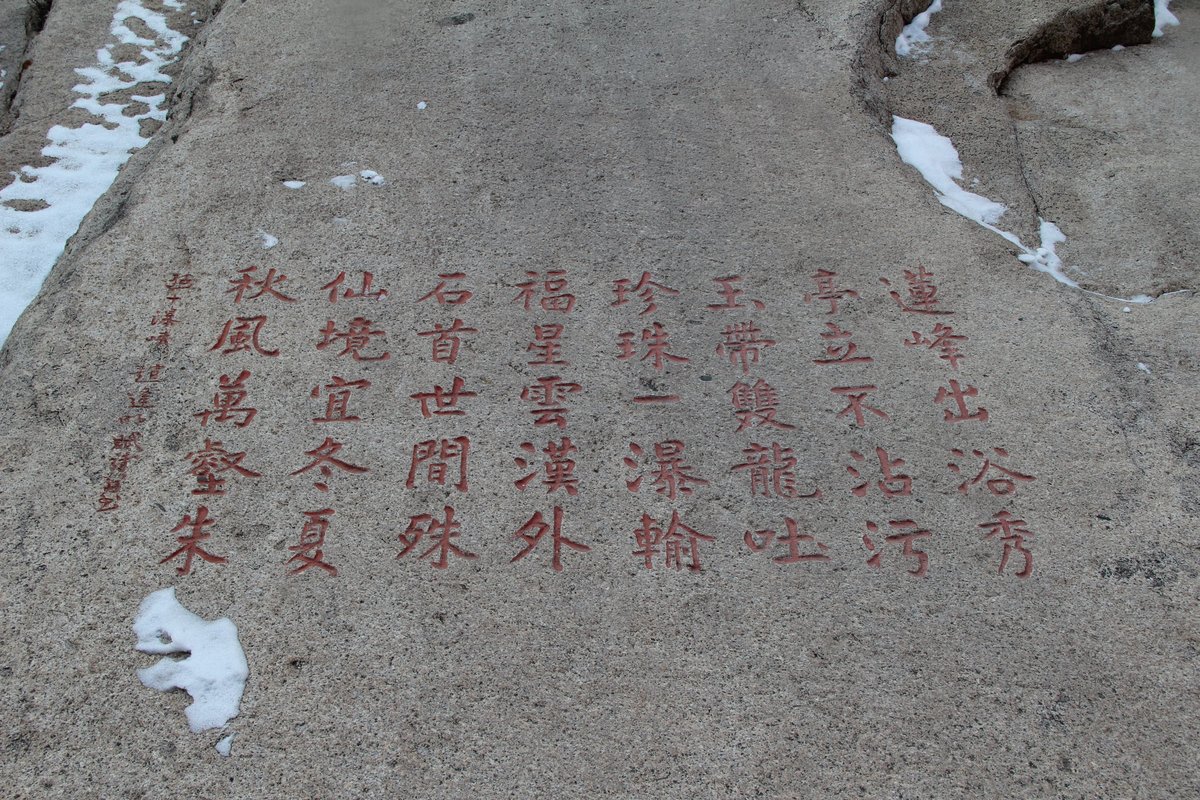 蓮峰出浴秀
亭立不沾污
玉帶雙龍吐
珍珠一瀑輸
福星雲漢外
石首世間殊
仙境宜冬夏
秋風萬壑朱